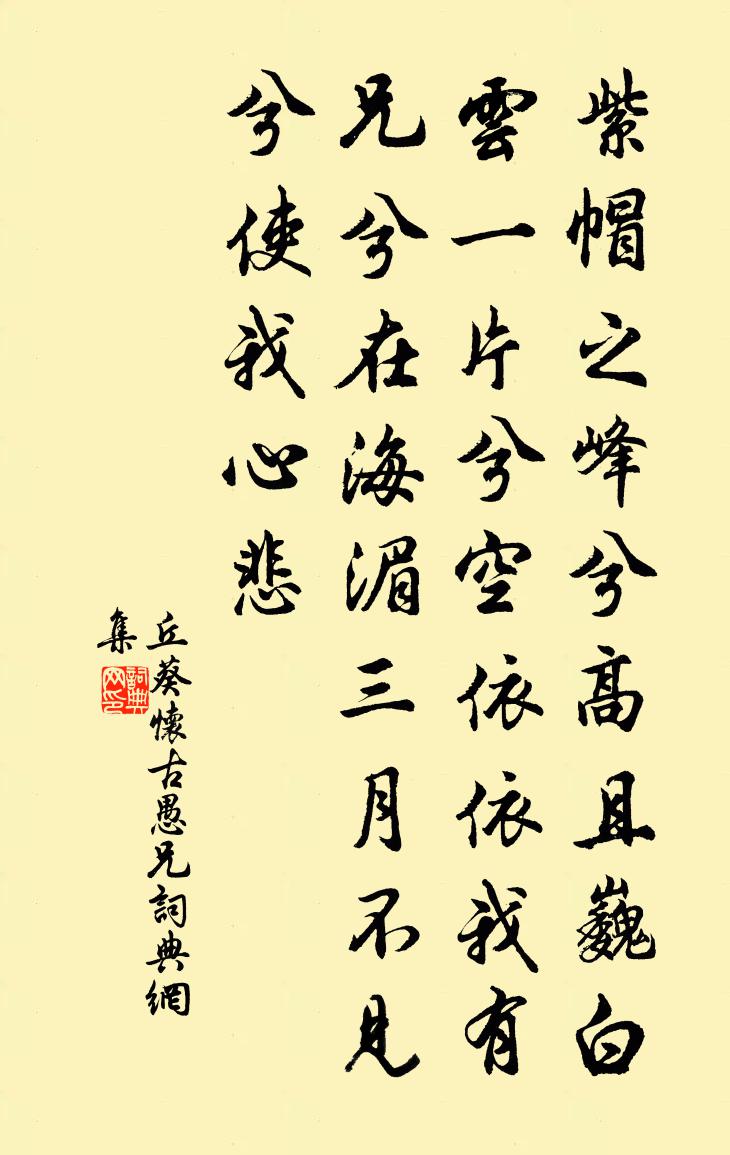 紫帽之峰兮高且巍白
雲一片兮空依依我有
兄兮在海湄三月不見
兮使我心悲
丘葵懷古愚兄詞典網
集
詞典
网印